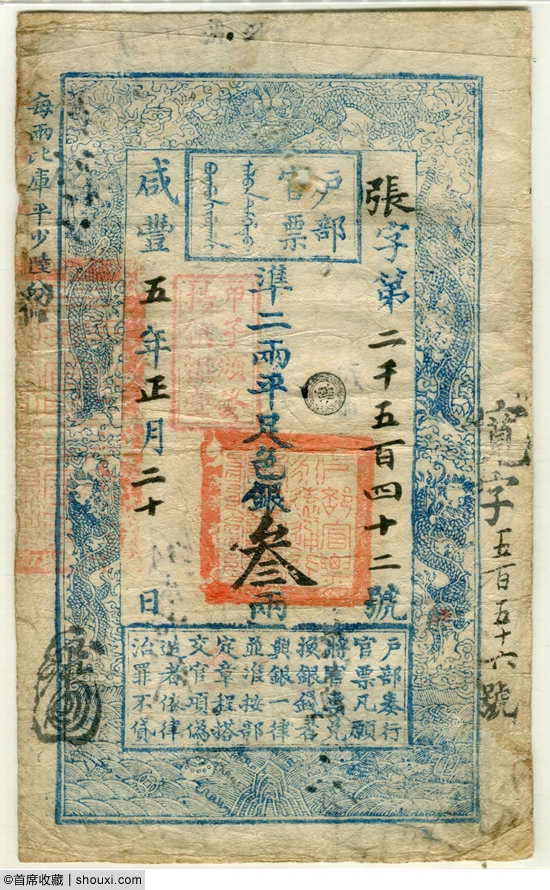 寬字五百五十六號
張字第二千五百四十二號
戶部
官票
準二兩平足色銀叁兩
咸豐五年正月二十日
每兩比庫平少陸分
戶部奏行
官票凡願
將官票兌
換銀錢者
與銀一律
並准按部
定章程搭
交官項偽
造者依律
治罪不貸
©首席收藏 | shouxi.com